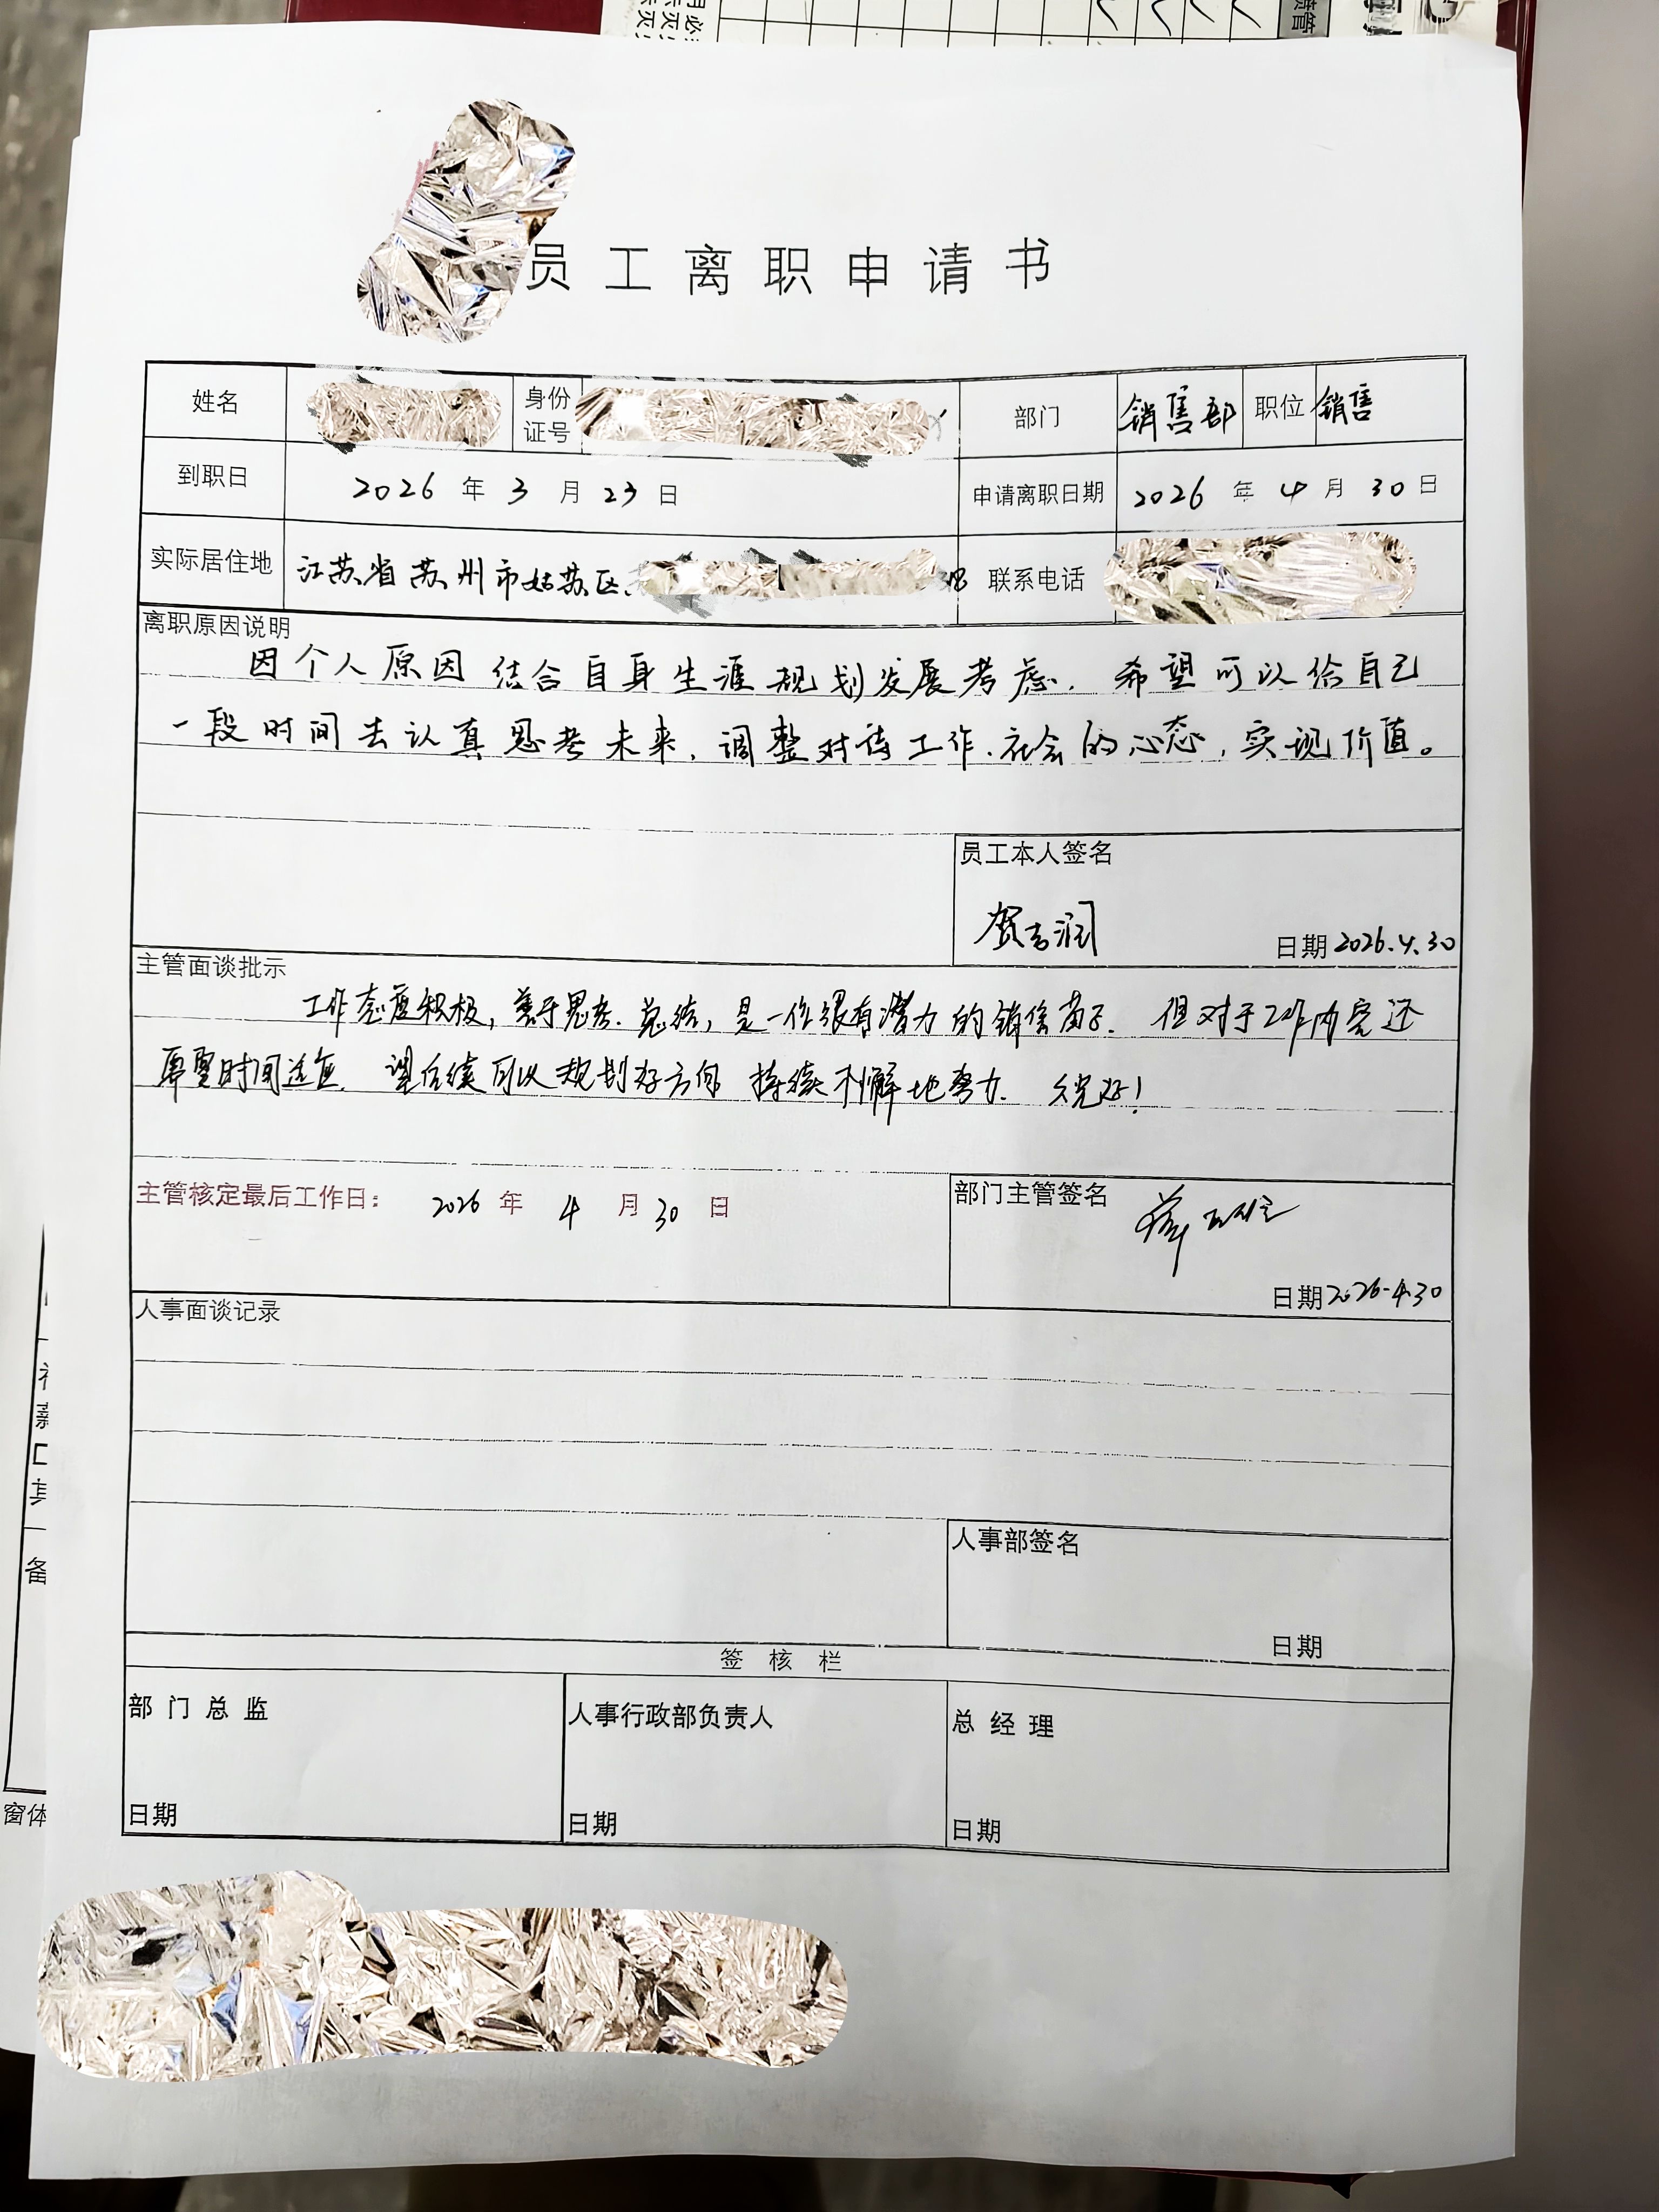 员工离职申请书
姓名 身份证号 部门 销售部 职位 销售
到职日 2026 年 3 月 23 日 申请离职日期 2026 年 4 月 30 日
实际居住地 江苏省苏州市姑苏区 联系电话
离职原因说明
因个人原因结合自身生涯规划发展考虑,希望可以给自己
一段时间去认真思考未来,调整对待工作、社会的心态,实现价值。
员工本人签名
贺吉润
日期 2026.4.30
主管面谈批示
工作态度积极,善于思考、总结,是一位很有潜力的销售苗子. 但对于工作内容还
需要时间适应. 望后续可以规划好方向 持续不懈地努力. 祝好!
主管核定最后工作日: 2026 年 4 月 30 日
部门主管签名
日期 2026.4.30
人事面谈记录
人事部签名
日期
签核栏
部门总监 人事行政部负责人 总经理
日期 日期 日期
备
窗体